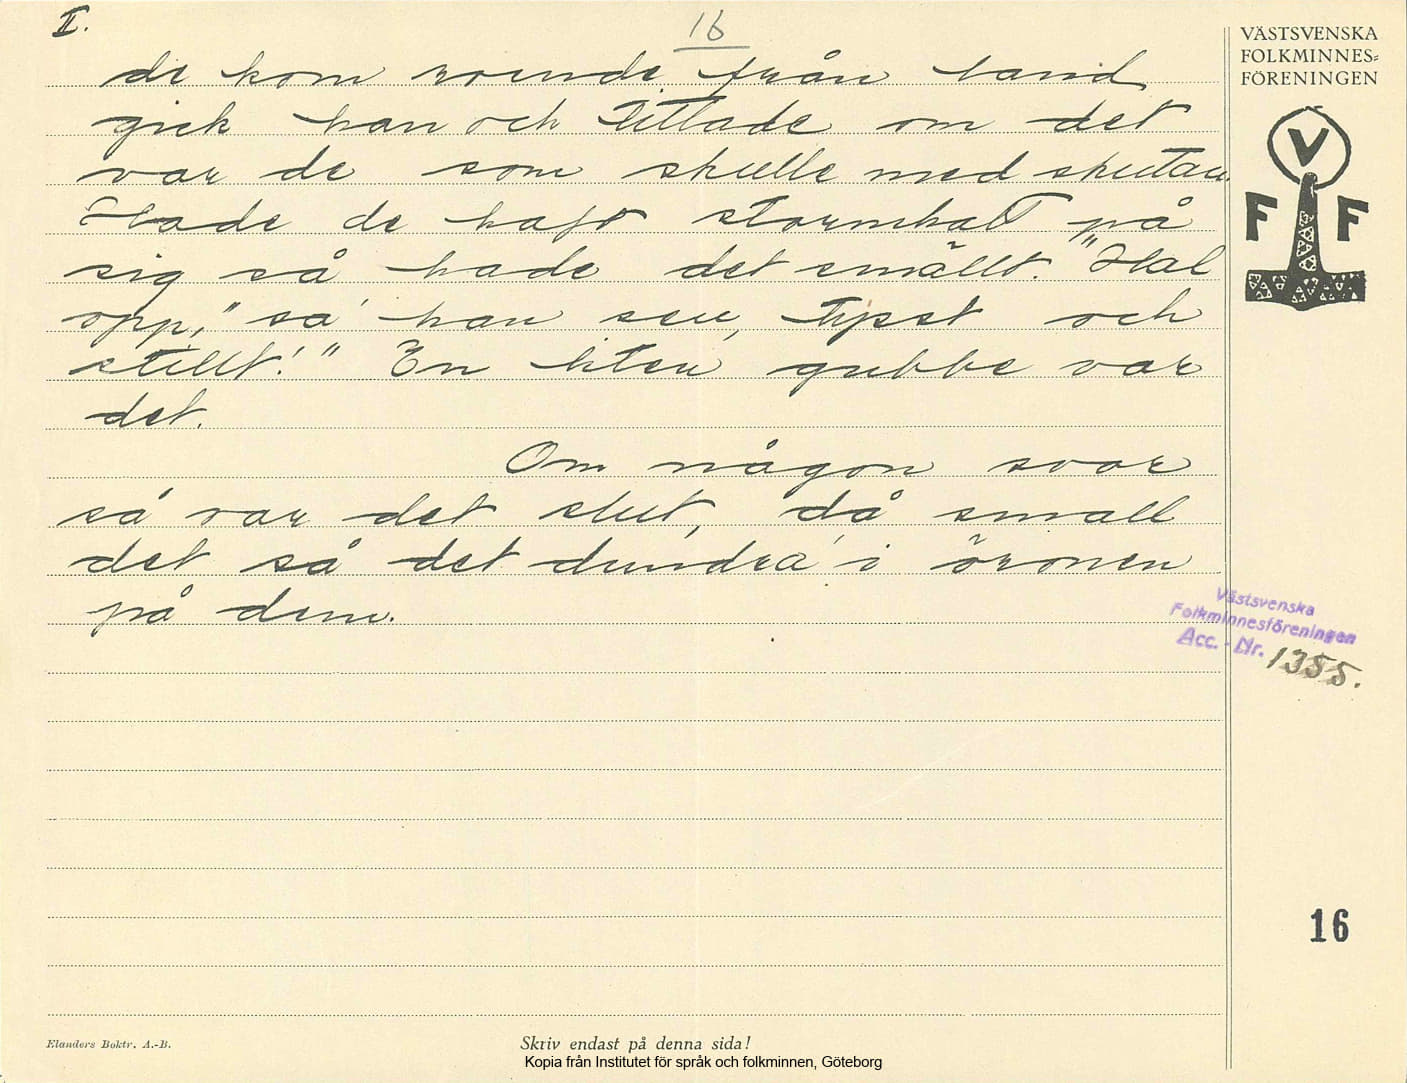 II.
16
de kom roende från land
gick han och tittade om det
var de som skulle med skutan.
Hade de haft stormhatt på
sig så hade det smällt. "Hal
opp," sa' han sen, "tysst och
stillt!" En liten gubbe var
det.
Om någon svor
så var det slut, då small
det så det dundra' i öronen
på dem.
VÄSTSVENSKA
FOLKMINNES=
FÖRENINGEN
V
F F
Västsvenska
Folkminnesföreningen
Acc. - Nr. 1355.
16
Elanders Boktr. A.-B.
Skriv endast på denna sida!
Kopia från Institutet för språk och folkminnen, Göteborg